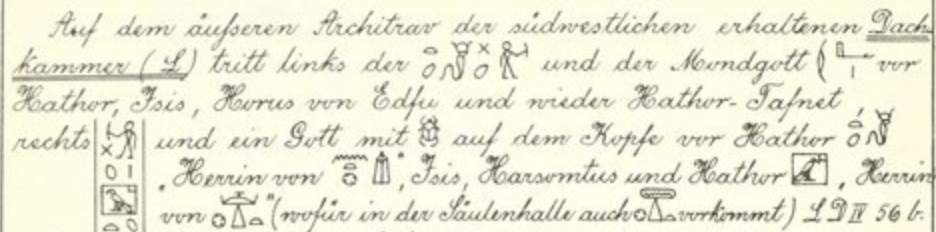 Auf dem äußeren Architrav der südwestlichen erhaltenen Dach-
kammer (L) tritt links der und der Mondgott ( vor
Hathor, Isis, Horus von Edfu und wieder Hathor-Tafnet,
rechts und ein Gott mit auf dem Kopfe vor Hathor
„Herrin von “, Isis, Harsomtus und Hathor , „Herrin
von “ (wofür in der Säulenhalle auch vorkommt) LD IV 56 b.